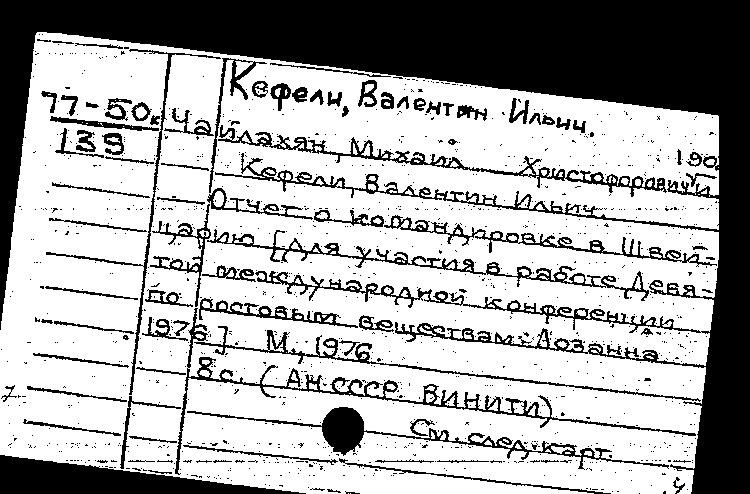 Кефели, Валентин Ильич.
77-50к
139
Чайлахян, Михаил Христофорович и
190
Кефели, Валентин Ильич.
Отчет о командировке в Швей-
царию [для участия в работе Девя-
той международной конференции
по ростовым веществам. Лозанна
1976]. М., 1976.
8 с. (АН СССР. ВИНИТИ).
См. след. карт.